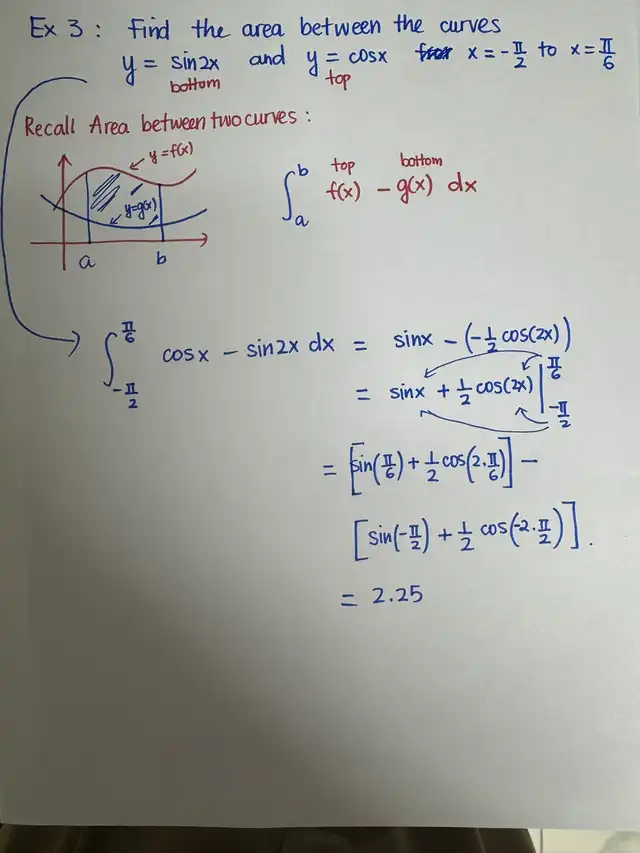 Ex 3 : Find the area between the curves
y = sin2x and y = cosx x = -π/2 to x = π/6
bottom top
Recall Area between two curves :
y = f(x)
y = g(x)
a b
top bottom
∫_a^b f(x) - g(x) dx
∫_{-π/2}^{π/6} cosx - sin2x dx = sinx - (-1/2 cos(2x))
= sinx + 1/2 cos(2x) |_{-π/2}^{π/6}
= [sin(π/6) + 1/2 cos(2·π/6)] -
[sin(-π/2) + 1/2 cos(-2·π/2)].
= 2.25